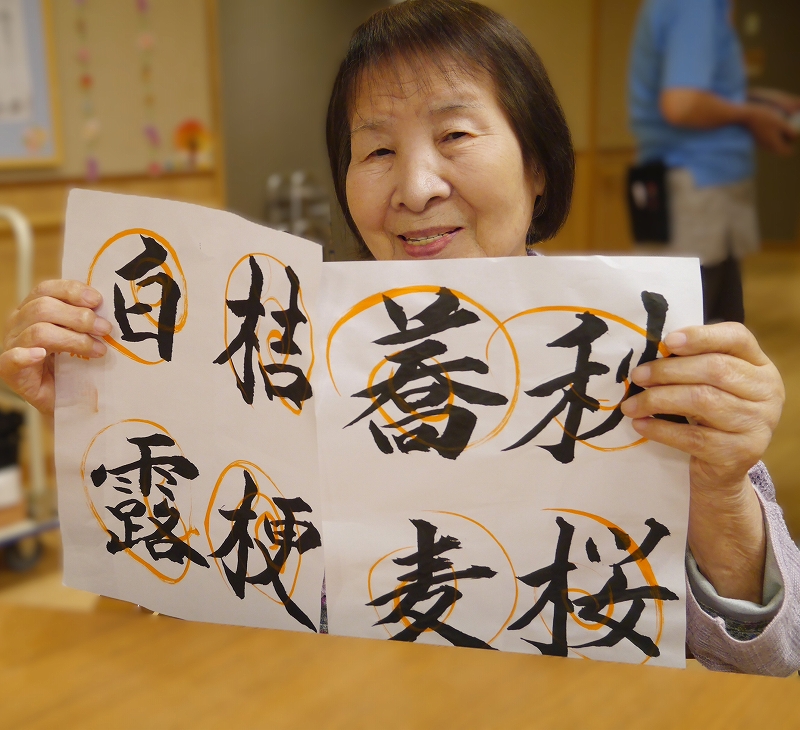 秋桜
蕎麦
桔梗
白露